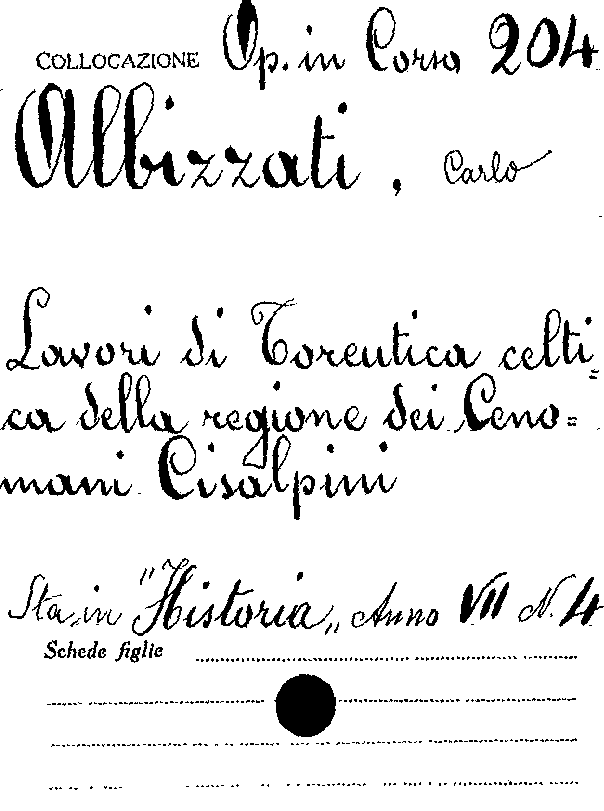 COLLOCAZIONE Op. in Corso 204
Albizzati, Carlo
Lavori di Toreutica celti=
ca della regione dei Ceno=
mani Cisalpini
Sta in "Historia„ Anno VII N. 4
Schede figlie